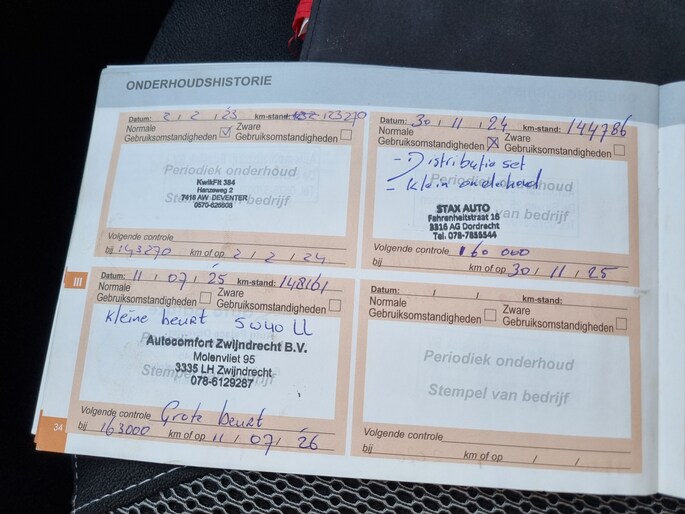 ONDERHOUDSHISTORIE
Datum: 2 / 2 / 23 km-stand: 123270
Normale Gebruiksomstandigheden ☑ Zware Gebruiksomstandigheden ☐
Periodiek onderhoud
KwikFit 384
Hanzeweg 2
7418 AW DEVENTER
0570-626805
Stempel van bedrijf
Volgende controle
bij 143270 km of op 2 / 2 / 24
Datum: 30 / 11 / 24 km-stand: 144786
Normale Gebruiksomstandigheden ☒ Zware Gebruiksomstandigheden ☐
- Distributie set
- Klein onderhoud
STAX AUTO
Fahrenheitstraat 16
3316 AG Dordrecht
Tel. 078-7855544
Volgende controle 160 000
bij km of op 30 / 11 / 25
III
Datum: 11 / 07 / 25 km-stand: 148161
Normale Gebruiksomstandigheden ☐ Zware Gebruiksomstandigheden ☐
Kleine beurt 5W40 LL
Autocomfort Zwijndrecht B.V.
Molenvliet 95
3335 LH Zwijndrecht
078-6129287
Volgende controle Grote beurt
bij 163000 km of op 11 / 07 / 26
Datum: / / km-stand:
Normale Gebruiksomstandigheden ☐ Zware Gebruiksomstandigheden ☐
Periodiek onderhoud
Stempel van bedrijf
Volgende controle
bij km of op / /
34